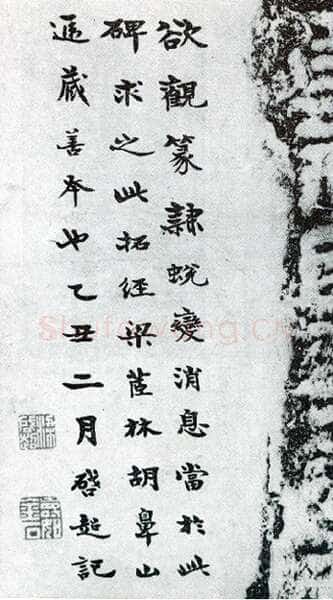 欲觀篆隸蛻變消息當於此
碑求之此拓經梁茝林胡鼻山
遞藏善本也乙丑二月啓超記